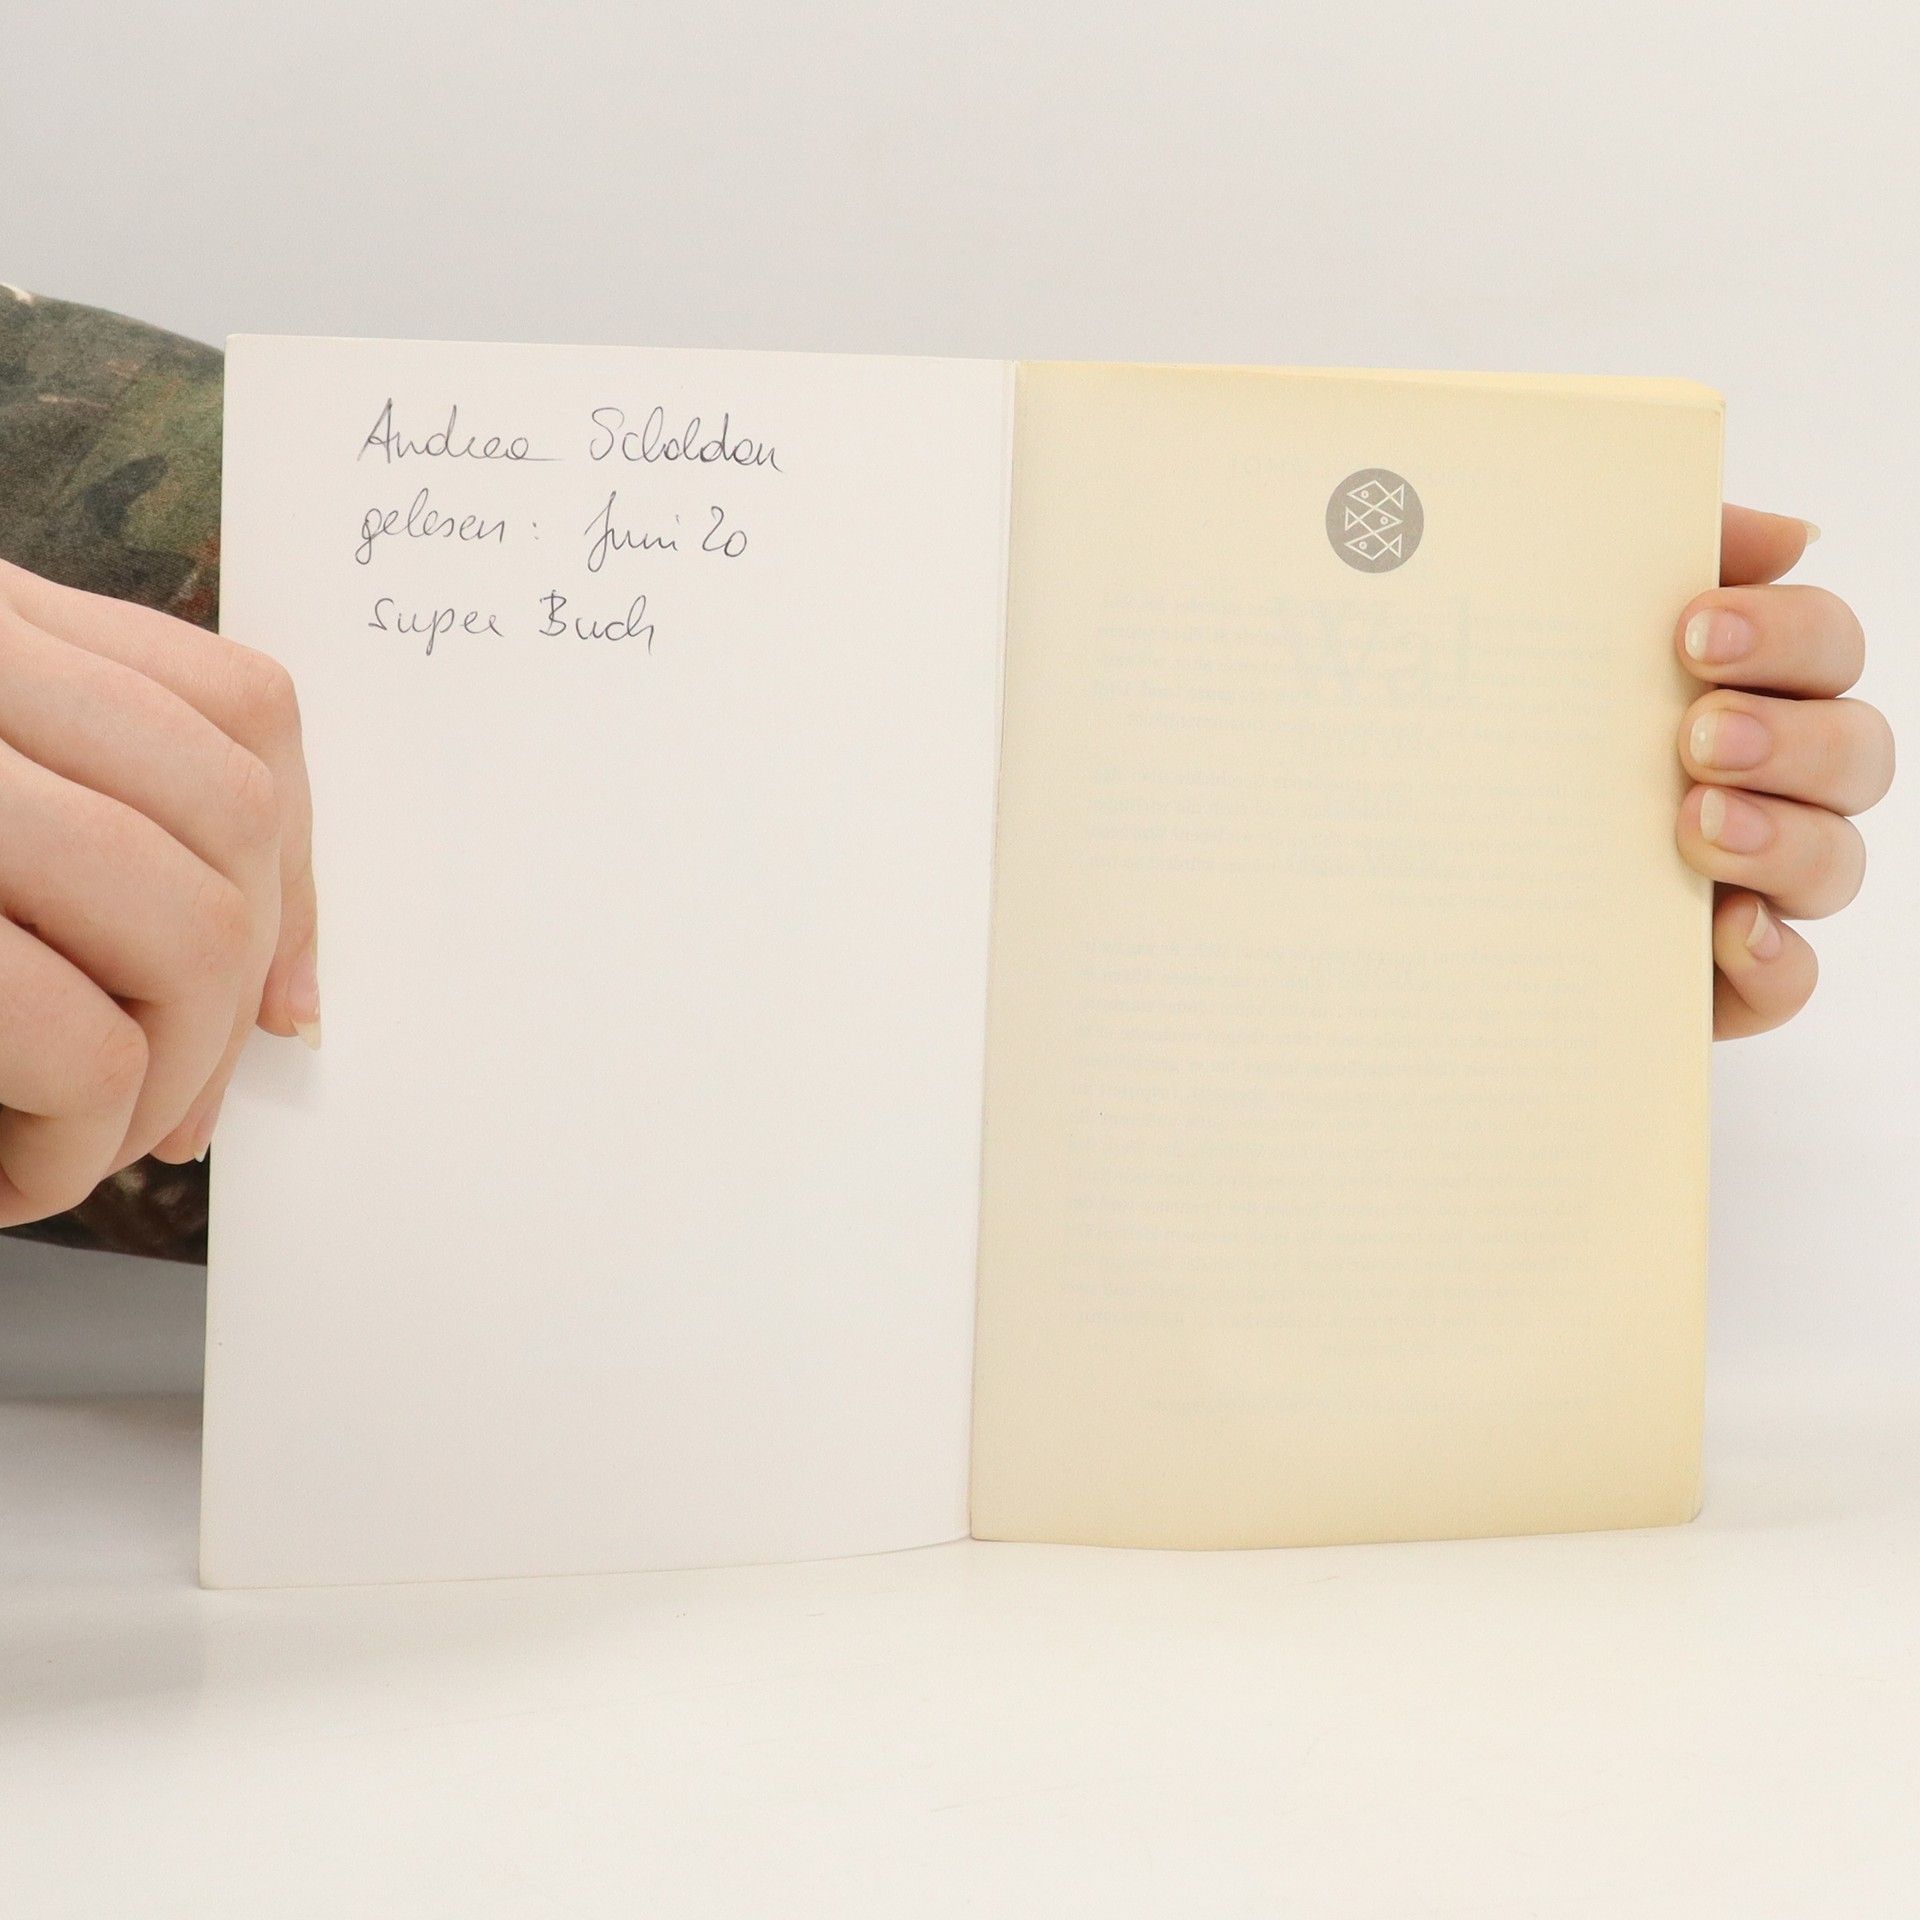 Andrea Scholdan
gelesen: Juni 20
super Buch